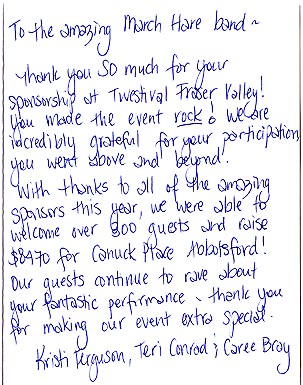 To the amazing March Hare band ~
Thank you SO much for your
sponsorship at Twestival Fraser Valley!
You made the event rock! We are
incredibly grateful for your participation,
you went above and beyond!
With thanks to all of the amazing
sponsors this year, we were able to
welcome over 200 guests and raise
$8470 for Canuck Place Abbotsford!
Our guests continue to rave about
your fantastic performance - thank you
for making our event extra special.
Kristi Ferguson, Teri Conrad & Caree Bray